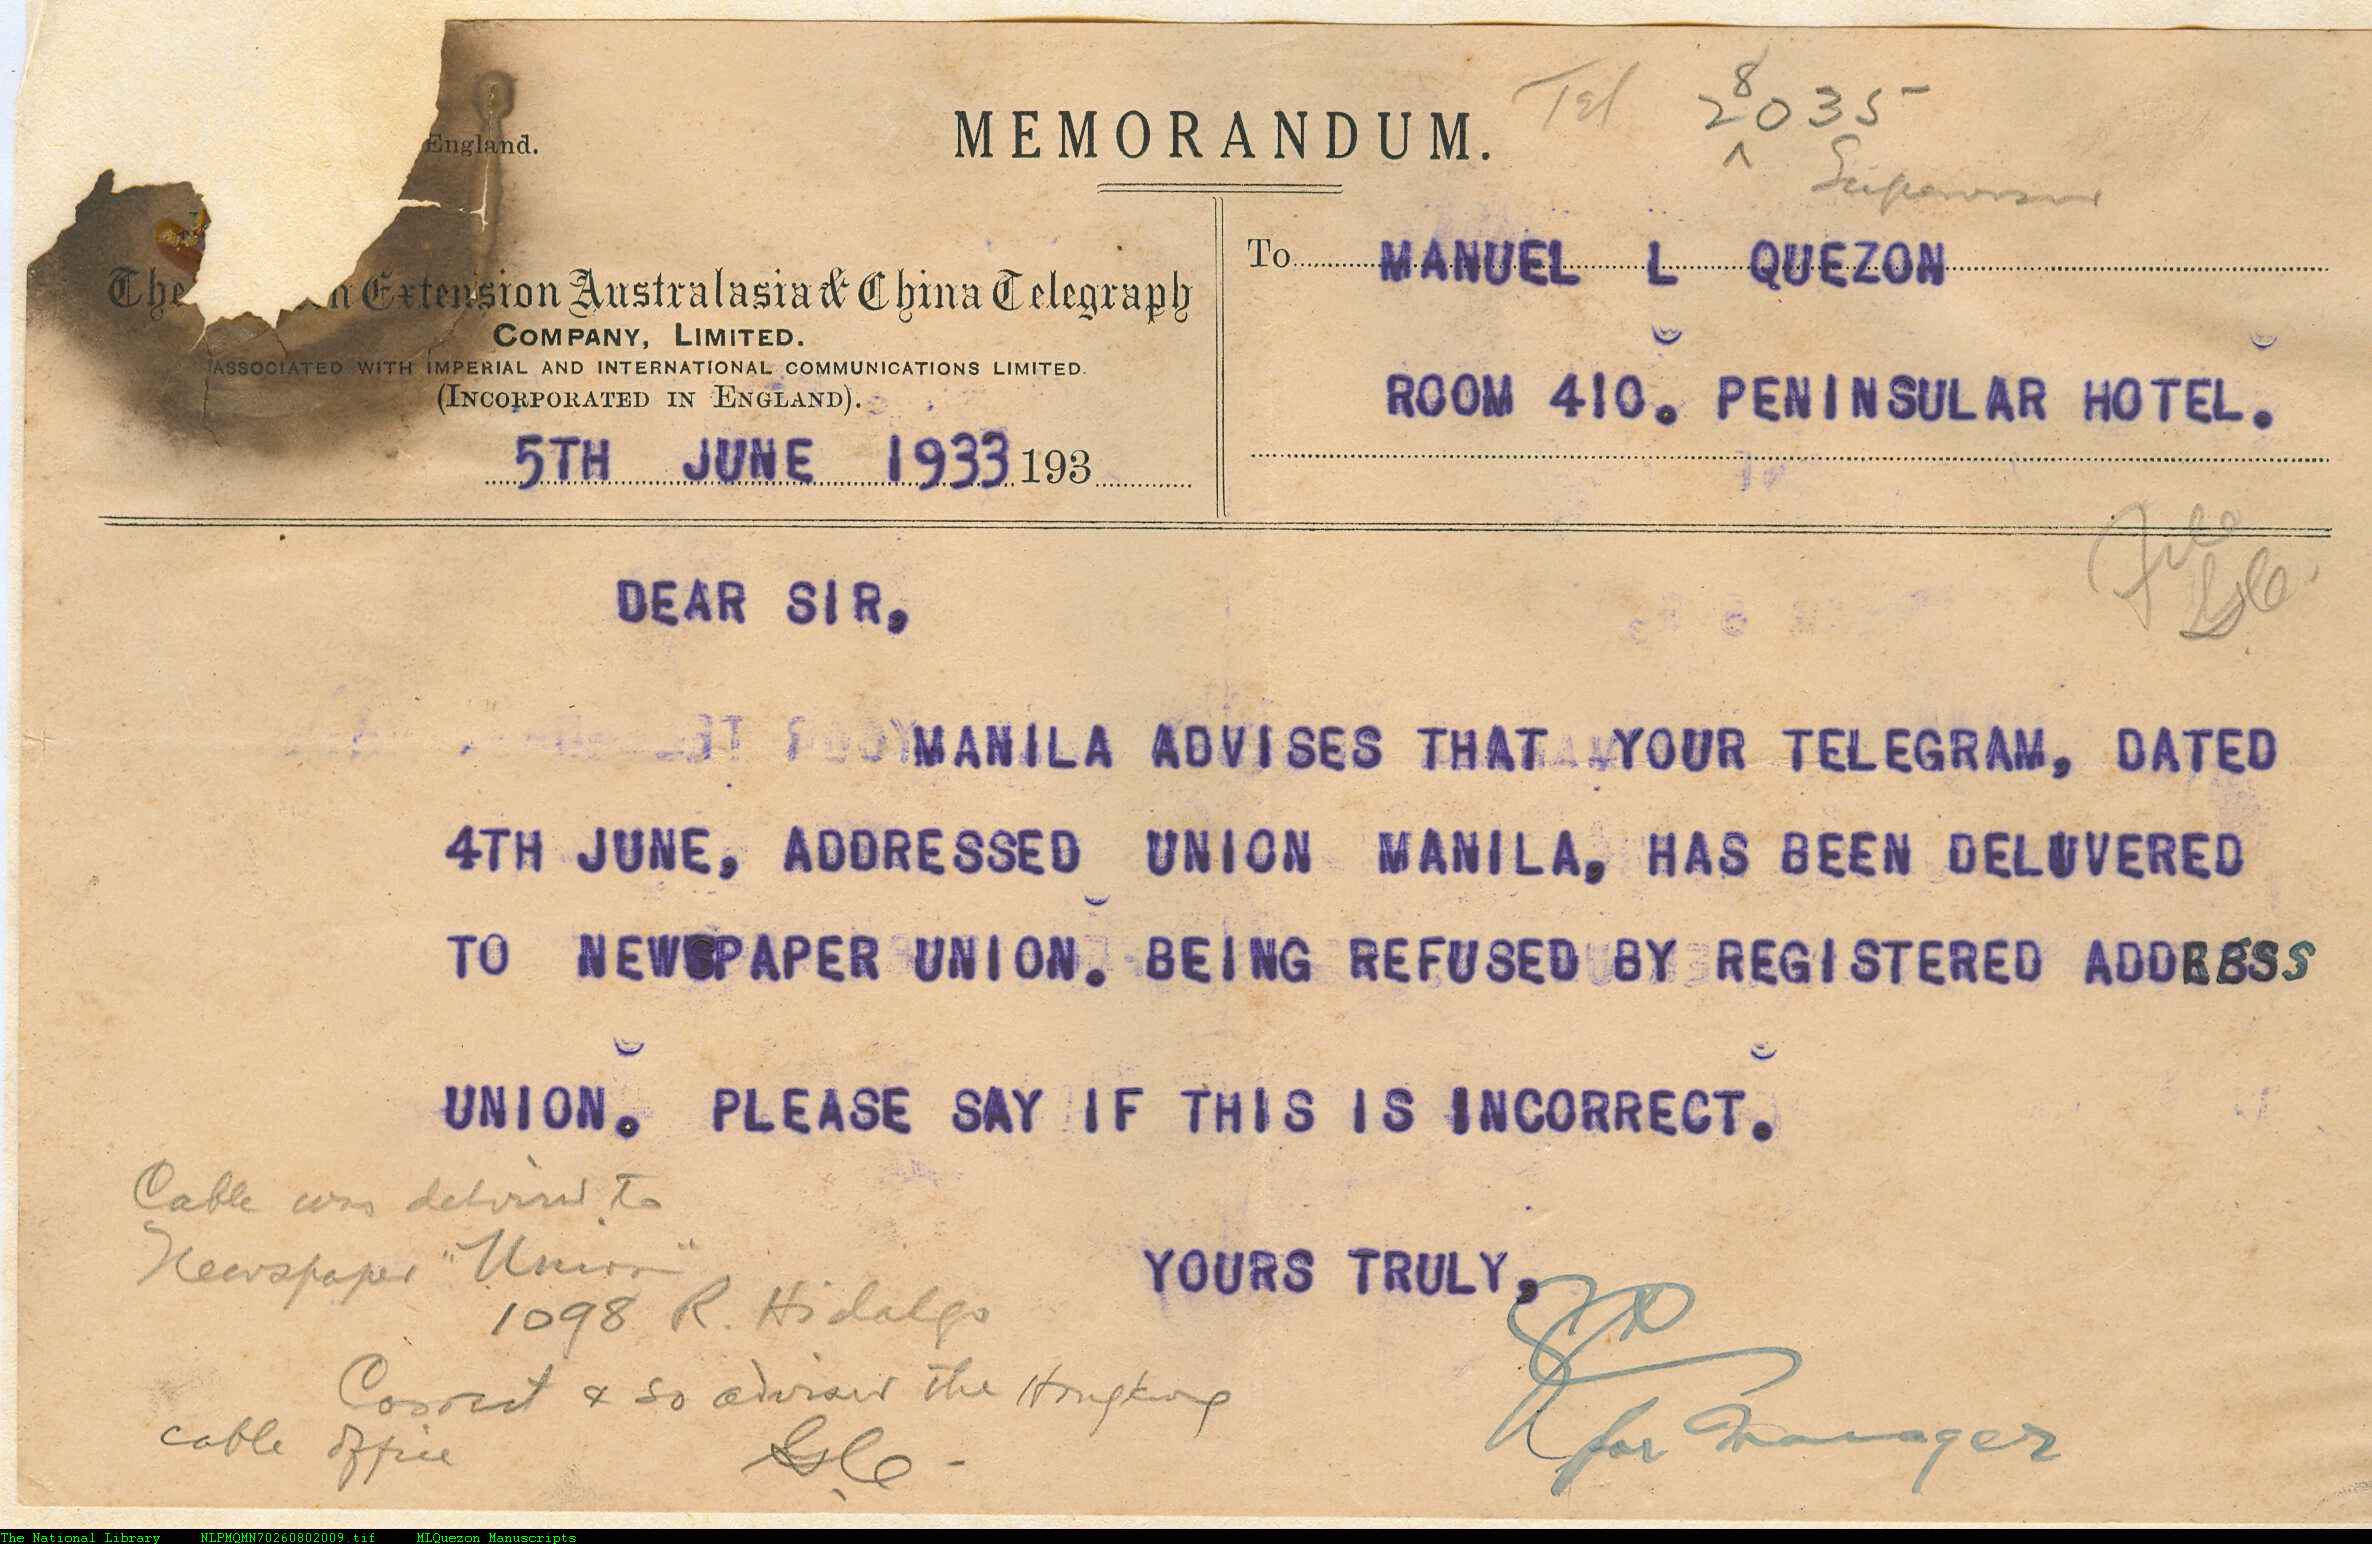 England.
MEMORANDUM.
Tel 28035
Supervisor
The n Extension Australasia & China Telegraph
COMPANY, LIMITED.
ASSOCIATED WITH IMPERIAL AND INTERNATIONAL COMMUNICATIONS LIMITED.
(INCORPORATED IN ENGLAND).
5TH JUNE 1933 193
To MANUEL L QUEZON
ROOM 410. PENINSULAR HOTEL.
File
DEAR SIR,
MANILA ADVISES THAT YOUR TELEGRAM, DATED
4TH JUNE, ADDRESSED UNION MANILA, HAS BEEN DELUVERED
TO NEWSPAPER UNION. BEING REFUSED BY REGISTERED ADDRESS
UNION. PLEASE SAY IF THIS IS INCORRECT.
YOURS TRULY,
for Manager
Cable was delivered to
Newspaper "Union"
1098 R. Hidalgo
Correct & so advised the Hongkong
cable office
The National Library NLPMQMN70260802009.tif MLQuezon Manuscripts